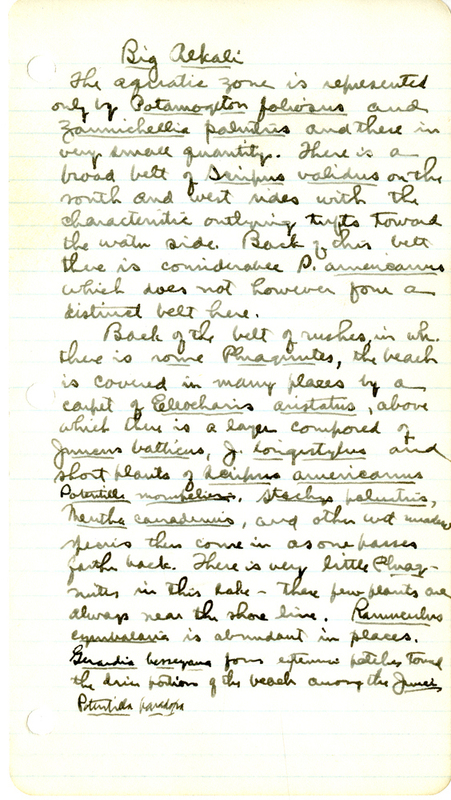 Big Alkali
The aquatic zone is represented
only by Potamogeton foliosus and
Zannichellia palustris and these in
very small quantity. There is a
broad belt of Scirpus validus on the
south and west sides with the
characteristic outlying tufts toward
the water side. Back of this belt
there is considerable S. americanus
which does not however form a
distinct belt here.
Back of the belt of rushes, in wh.
there is some Phragmites, the beach
is covered in many places by a
carpet of Eleocharis aristatus, above
which there is a layer composed of
Juncus balticus, J. longistylus and
short plants of Scirpus americanus
Potentilla monspeliens., Stachys palustris,
Mentha canadensis, and other wet meadow
species then come in as one passes
farther back. There is very little Phrag-
mites in this lake - these few plants are
always near the shore line. Ranunculus
cymbalaria is abundant in places.
Gerardia besseyana forms extensive patches toward
the drier portion of the beach among the Juncus
Potentilla paradoxa